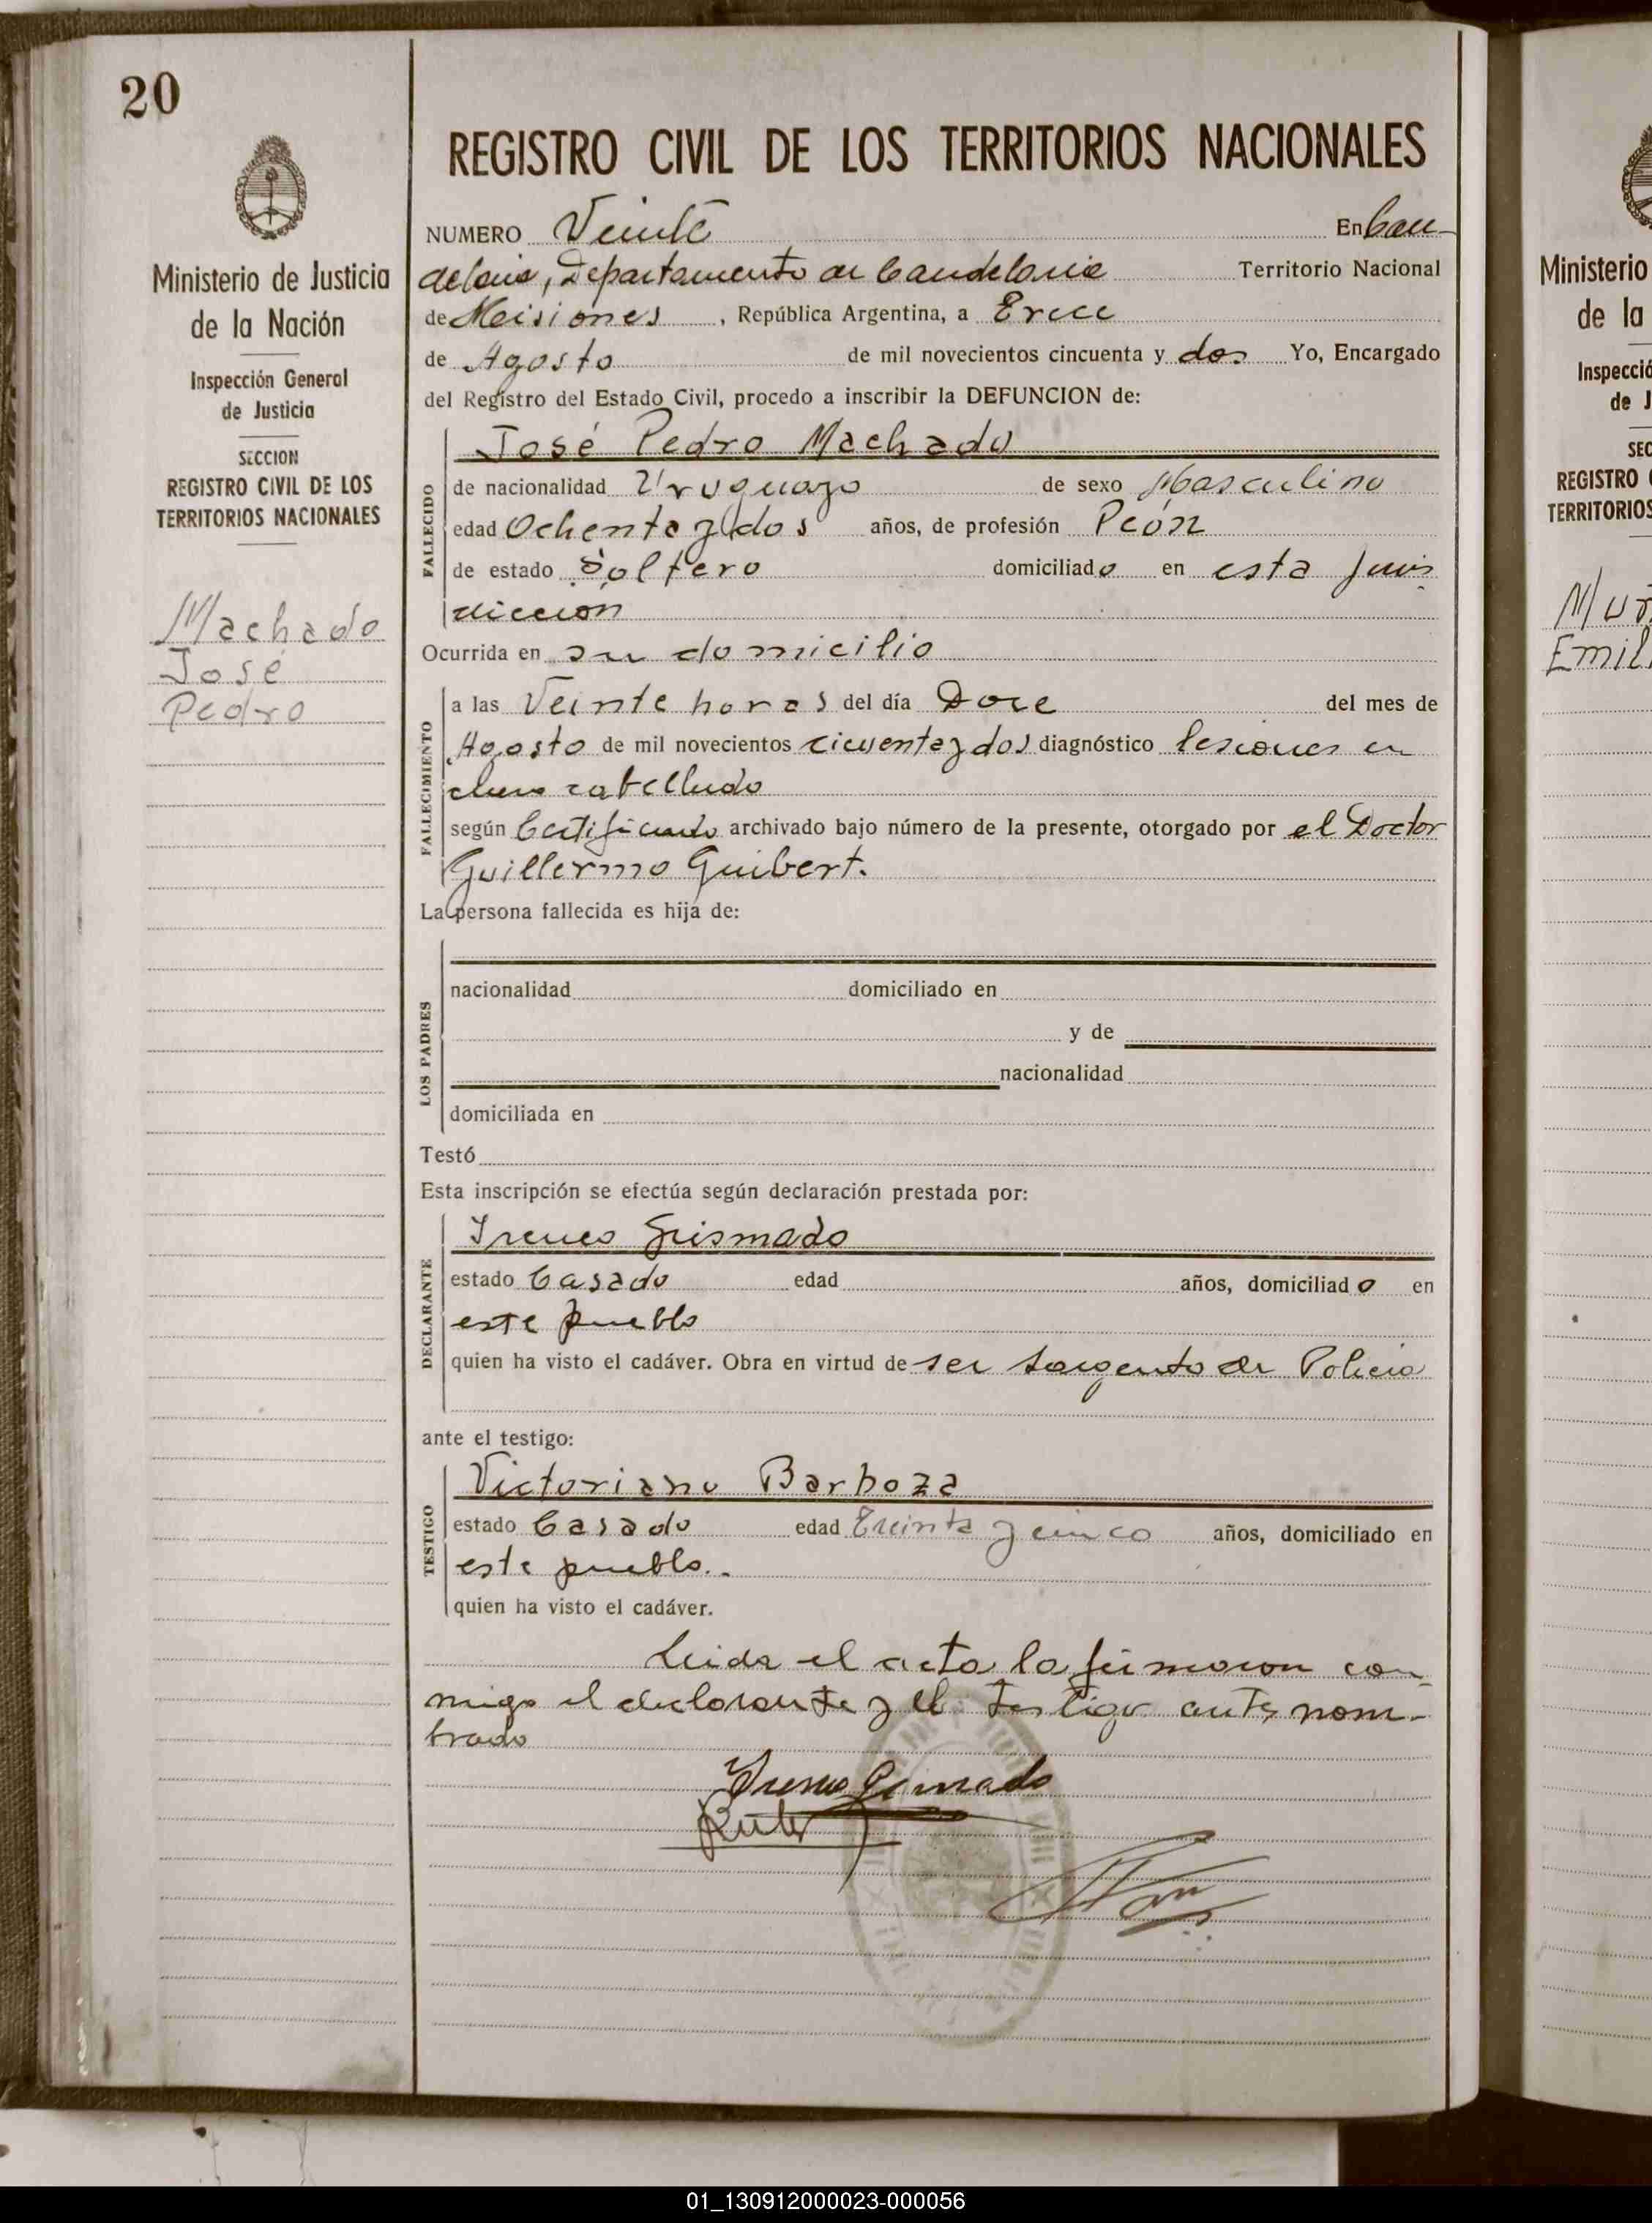 20
Ministerio de Justicia
de la Nación
Inspección General
de Justicia
SECCION
REGISTRO CIVIL DE LOS
TERRITORIOS NACIONALES
Machado
José
Pedro
REGISTRO CIVIL DE LOS TERRITORIOS NACIONALES
NUMERO Veinte En Can-
delaria, Departamento de Candelaria Territorio Nacional
de Misiones, República Argentina, a Trece
de Agosto de mil novecientos cincuenta y dos Yo, Encargado
del Registro del Estado Civil, procedo a inscribir la DEFUNCION de:
José Pedro Machado
FALLECIDO
de nacionalidad Uruguayo de sexo Masculino
edad Ochenta y dos años, de profesión Peón
de estado Soltero domiciliado en esta juris
dicción
Ocurrida en su domicilio
FALLECIMIENTO
a las Veinte horas del día Doce del mes de
Agosto de mil novecientos cicuenta y dos diagnóstico lesiones en
cuero cabelludo
según Certificado archivado bajo número de la presente, otorgado por el Doctor
Guillermo Guibert.
La persona fallecida es hija de:
LOS PADRES
nacionalidad domiciliado en
y de
nacionalidad
domiciliada en
Testó
Esta inscripción se efectúa según declaración prestada por:
DECLARANTE
Ireneo Grismado
estado Casado edad años, domiciliado en
este pueblo
quien ha visto el cadáver. Obra en virtud de ser sargento de Policia
ante el testigo:
TESTIGO
Victoriano Barboza
estado Casado edad Treinta y cinco años, domiciliado en
este pueblo.
quien ha visto el cadáver.
Leida el acta la firmaron con
migo el declarante y el testigo antes nom-
brado
Ireneo Grismado
Ministerio
de la
Inspecció
de J
SEC
REGISTRO
TERRITORIOS
Emil
01_130912000023-000056